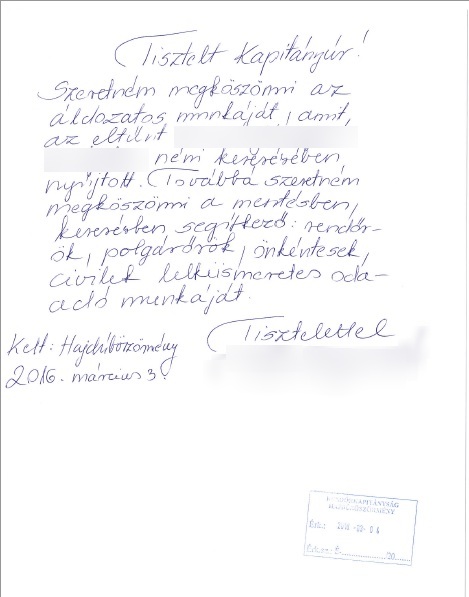 Tisztelt Kapitányúr!
Szeretném megköszönni az
áldozatos munkáját, amit,
az eltűnt
néni keresésében
nyújtott. Továbbá szeretném
megköszönni a mentésben,
keresésben segítkező: rendőr-
ök, polgárőrök, önkéntesek,
civilek lelkiismeretes oda-
adó munkáját.
Tisztelettel
Kelt: Hajdúböszörmény
2016. március 3.
RENDŐRKAPITÁNYSÁG
HAJDÚBÖSZÖRMÉNY
Érk.: 2016 -03- 04